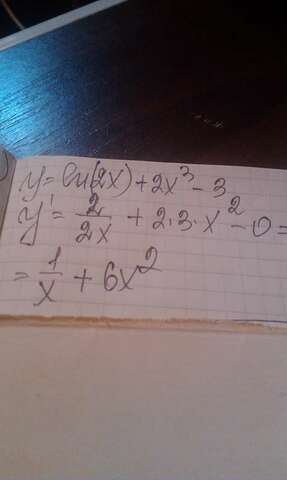 y = ln(2x) + 2x³ - 3
y' = 2/2x + 2·3·x² - 0 =
= 1/x + 6x²